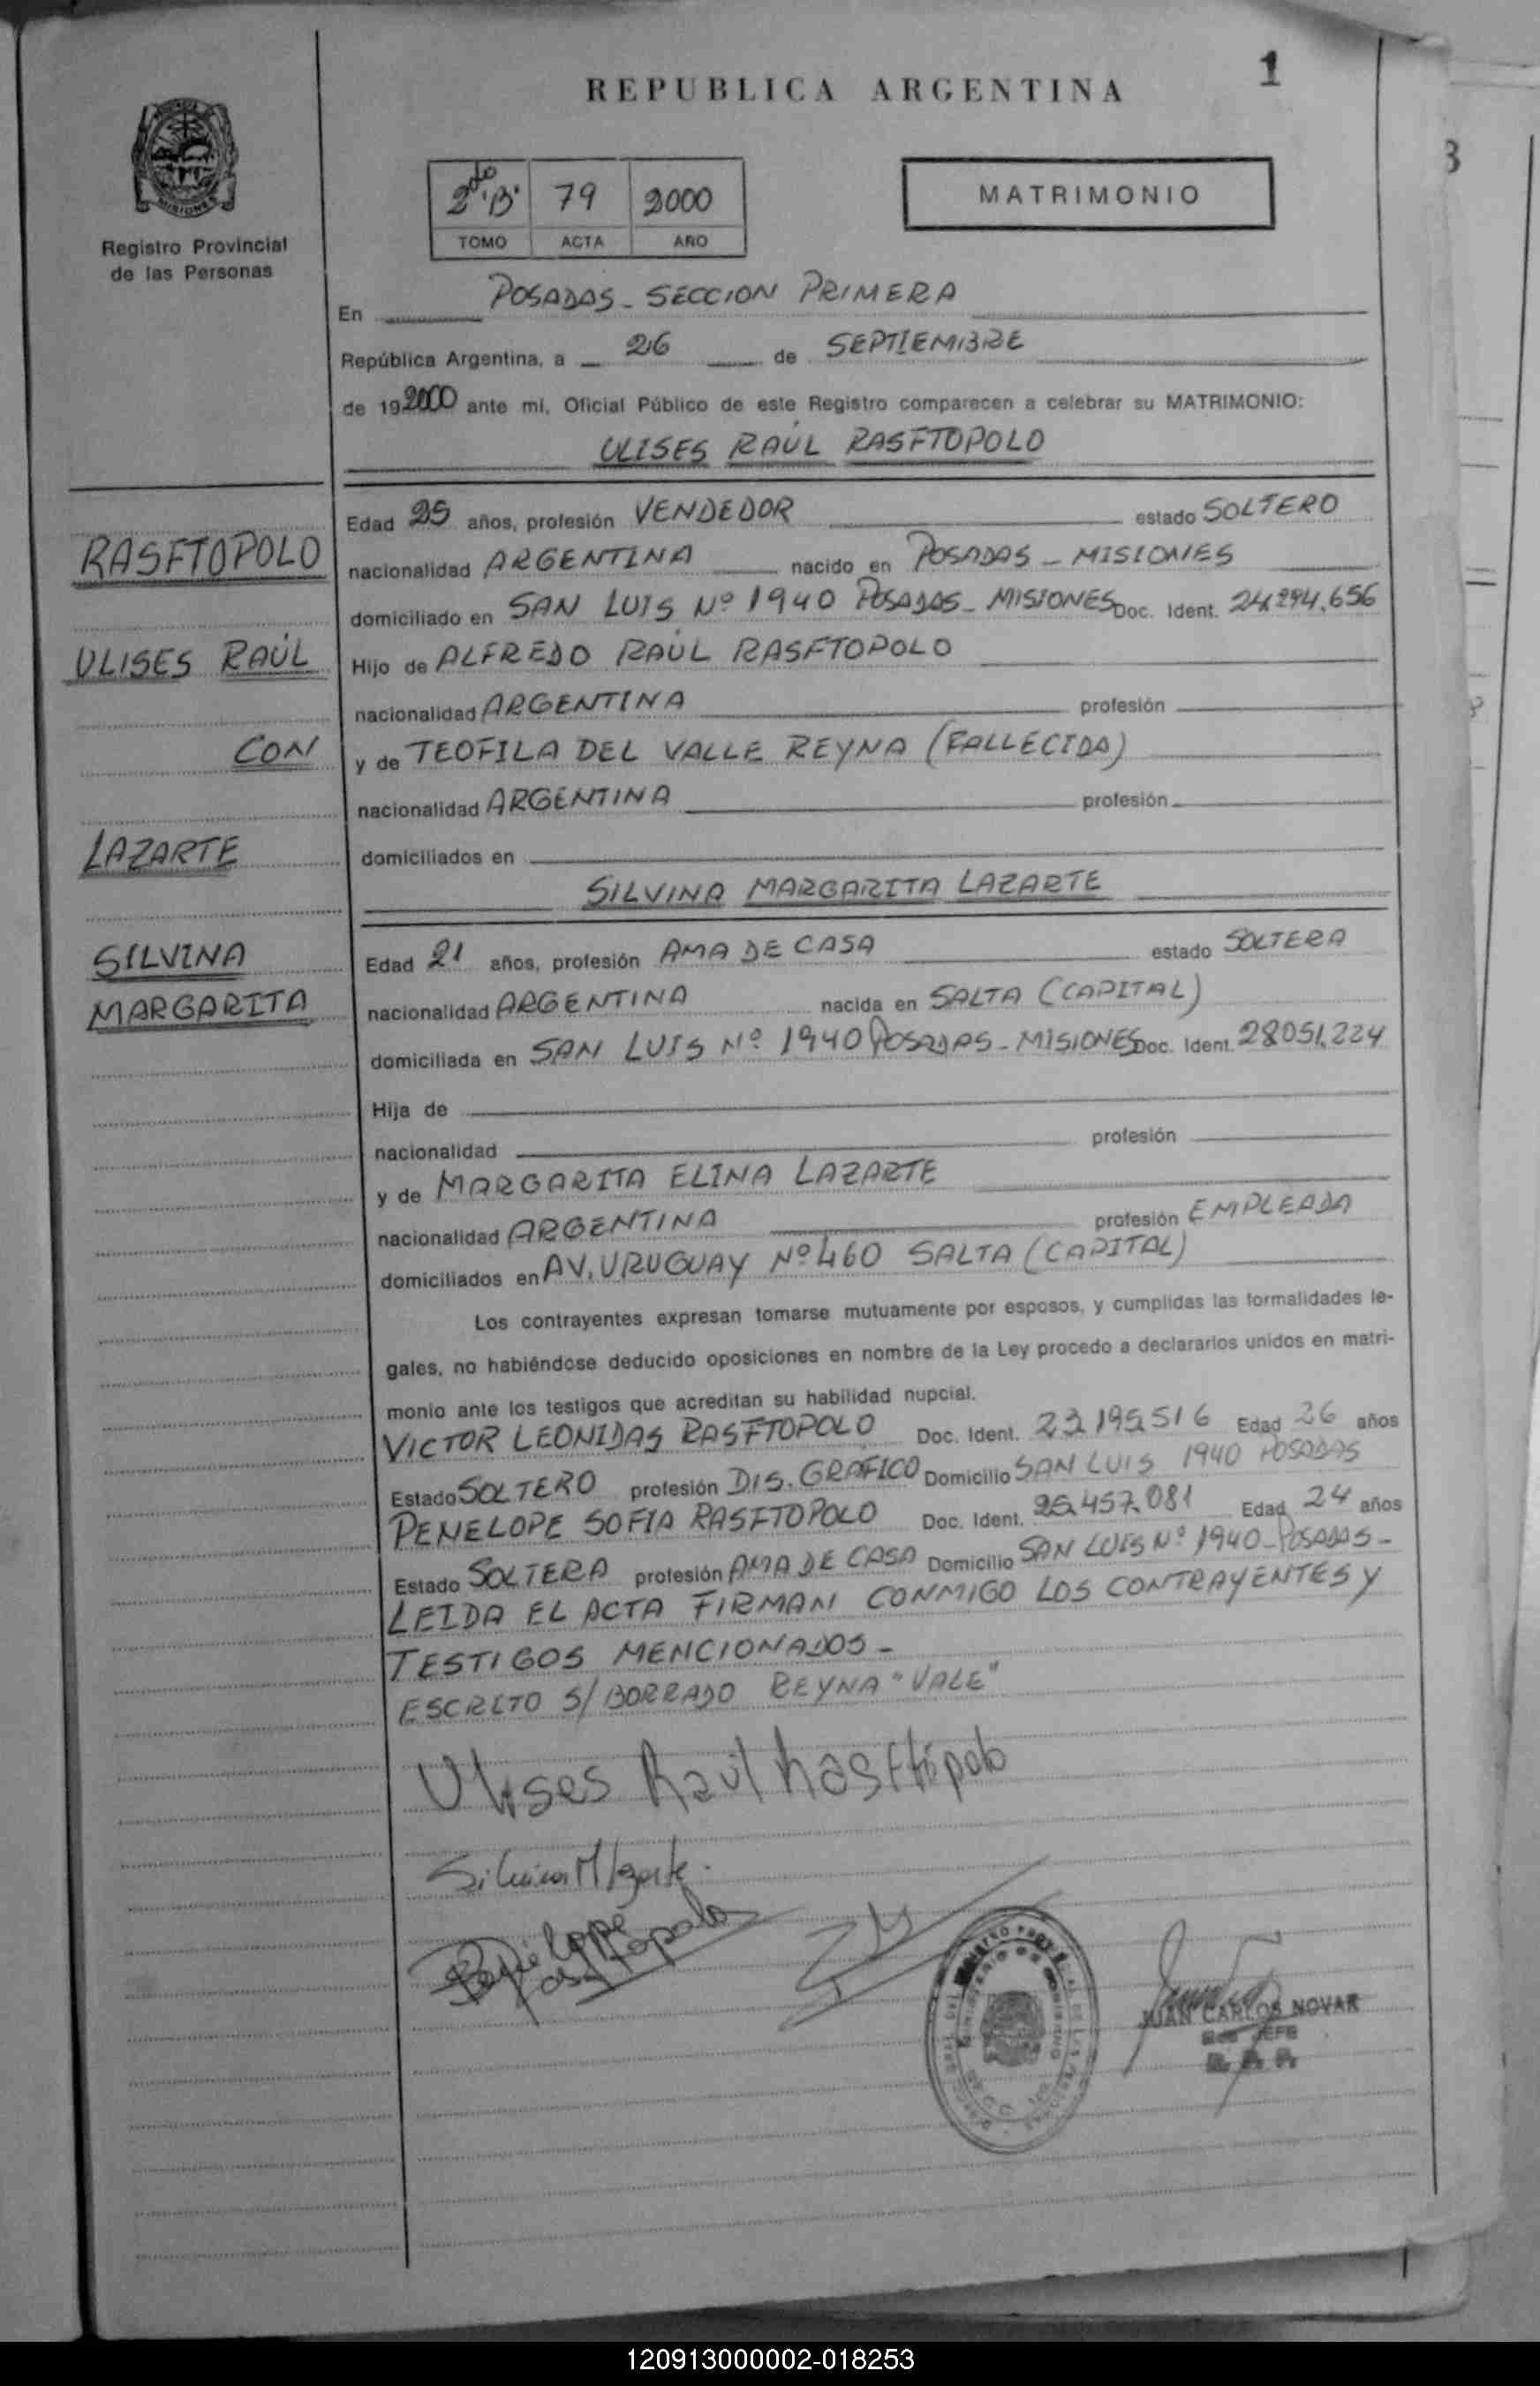 REPUBLICA ARGENTINA
1
MISIONES
Registro Provincial
de las Personas
2do "B" 79 2000
TOMO ACTA AÑO
MATRIMONIO
En POSADAS - SECCION PRIMERA
República Argentina, a 26 de SEPTIEMBRE
de 192000 ante mí, Oficial Público de este Registro comparecen a celebrar su MATRIMONIO:
ULISES RAÚL RASFTOPOLO
RASFTOPOLO
ULISES RAÚL
CON
LAZARTE
SILVINA
MARGARITA
Edad 25 años, profesión VENDEDOR estado SOLTERO
nacionalidad ARGENTINA nacido en POSADAS - MISIONES
domiciliado en SAN LUIS Nº 1940 POSADAS - MISIONES Doc. Ident. 24.294.656
Hijo de ALFREDO RAÚL RASFTOPOLO
nacionalidad ARGENTINA profesión
y de TEOFILA DEL VALLE REYNA (FALLECIDA)
nacionalidad ARGENTINA profesión
domiciliados en
SILVINA MARGARITA LAZARTE
Edad 21 años, profesión AMA DE CASA estado SOLTERA
nacionalidad ARGENTINA nacida en SALTA (CAPITAL)
domiciliada en SAN LUIS Nº 1940 POSADAS - MISIONES Doc. Ident. 28051.224
Hija de
nacionalidad profesión
y de MARGARITA ELINA LAZARTE
nacionalidad ARGENTINA profesión EMPLEADA
domiciliados en AV. URUGUAY Nº 460 SALTA (CAPITAL)
Los contrayentes expresan tomarse mutuamente por esposos, y cumplidas las formalidades le-
gales, no habiéndose deducido oposiciones en nombre de la Ley procedo a declararlos unidos en matri-
monio ante los testigos que acreditan su habilidad nupcial.
VICTOR LEONIDAS RASFTOPOLO Doc. Ident. 23.195.516 Edad 26 años
Estado SOLTERO profesión DIS. GRAFICO Domicilio SAN LUIS 1940 POSADAS
PENELOPE SOFIA RASFTOPOLO Doc. Ident. 25.457.081 Edad 24 años
Estado SOLTERA profesión AMA DE CASA Domicilio SAN LUIS Nº 1940 - POSADAS -
LEIDA EL ACTA FIRMAN CONMIGO LOS CONTRAYENTES Y
TESTIGOS MENCIONADOS -
ESCRITO S/ BORRADO REYNA "VALE"
Ulises Raúl Rasftópolo
Silvina M Lazarte.
Penélope
Rasftopolo
JUAN CARLOS NOVAK
JEFE
120913000002-018253